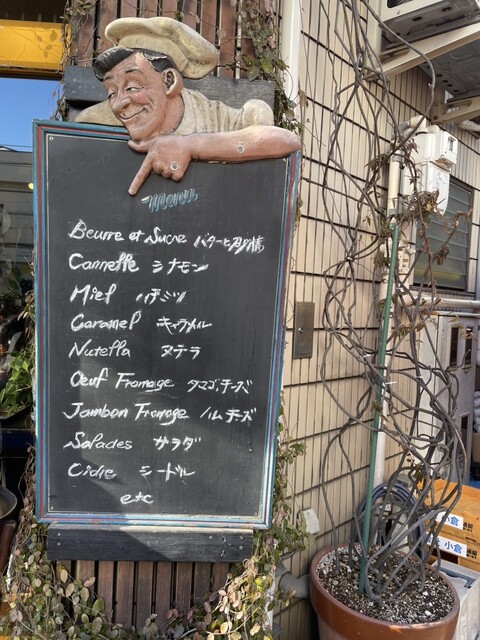 menu
Beurre et Sucre バターと砂糖
Cannelle シナモン
Miel ハチミツ
Caramel キャラメル
Nutella ヌテラ
Oeuf Fromage タマゴ、チーズ
Jambon Fromage ハム チーズ
Salades サラダ
Cidre シードル
etc
小倉
小倉